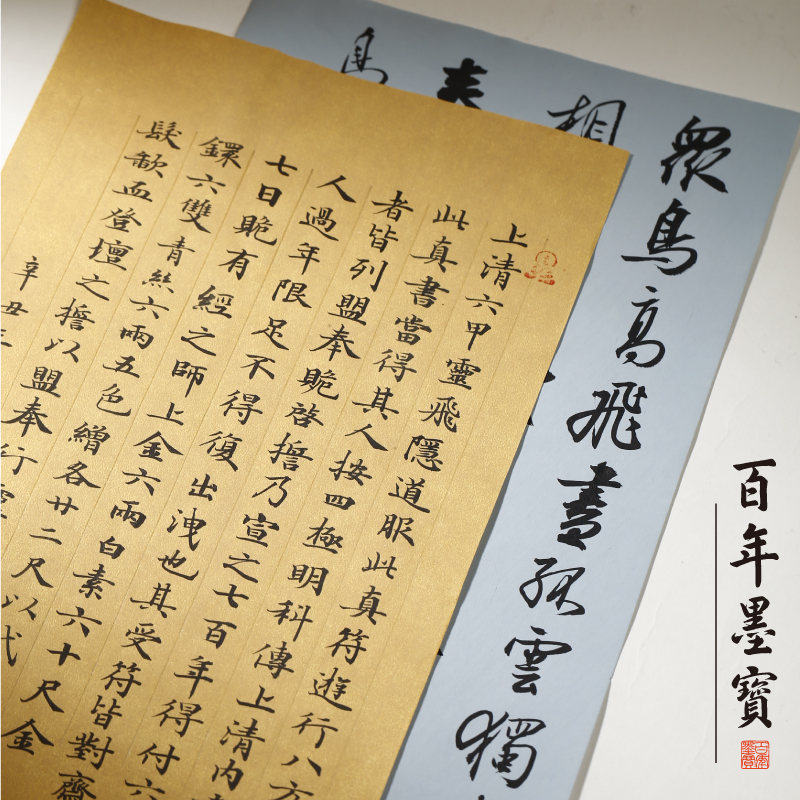 眾鳥高飛盡孤雲獨
相
上清六甲靈飛隱道服此真符遊行八方
此真書當得其人按四極明科傳上清內
者皆列盟奉䞈啓誓乃宣之七百年得付六
人過年限足不得復出洩也其受符皆對齋
七日䞈有經之師上金六兩白素六十尺金
鐶六雙青絲六兩五色繒各廿二尺以代
髮歃血登壇之誓以盟奉行
辛丑
百年墨寶
百年墨寶